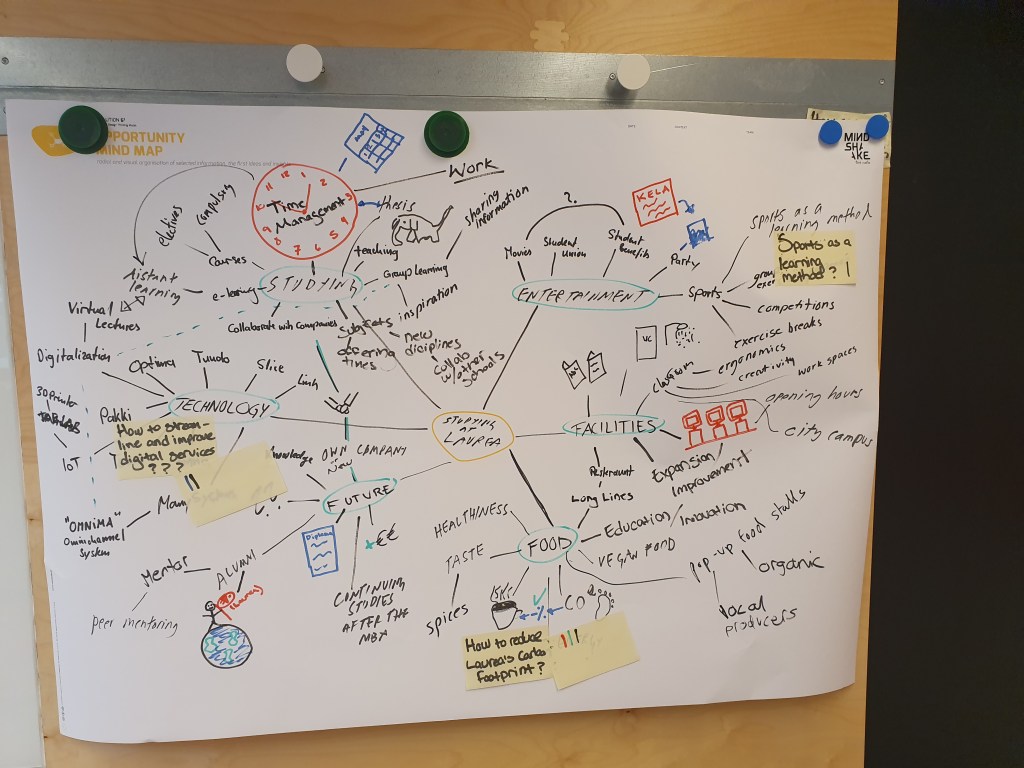 OPPORTUNITY
MIND MAP
MIND
SHAKE
Time
Management
11 12 1 2
8 7 6 5
Work
thesis
sharing
information
teaching
Group learning
inspiration
new
diciplines
collab
w/other
schools
STUDYING
compulsory
electives
courses
distant
learning
Collaborate with Companies
offering
times
Virtual
Lectures
Digitalization
Optima
Tuudo
Slice
Linh
Pakki
TECHNOLOGY
3D Printer
IoT
How to stream-
line and improve
digital services
? ? ?
"OMNIMA"
Omnichannel
System
STUDYING
AT
LAUREA
?
KELA
Movies
Student
Union
Student
Benefits
Party
ENTERTAINMENT
Sports
sports as a
learning method
Sports as a
learning
method? 1
competitions
exercise breaks
UC
classroom
ergonomics
creativity
work spaces
opening hours
city campus
FACILITIES
Expansion/
Improvement
Restaurant
Long Lines
OWN COMPANY
FUTURE
Diploma
+€€
CONTINUING
STUDIES
AFTER THE
MBA
Mentor
peer mentoring
HEALTHINESS
TASTE
spices
FOOD
Education/Innovation
VEGAN FOOD
pop-up food stalls
organic
local
producers
-%
CO
How to reduce
Laurea's Carbo
Footprint?